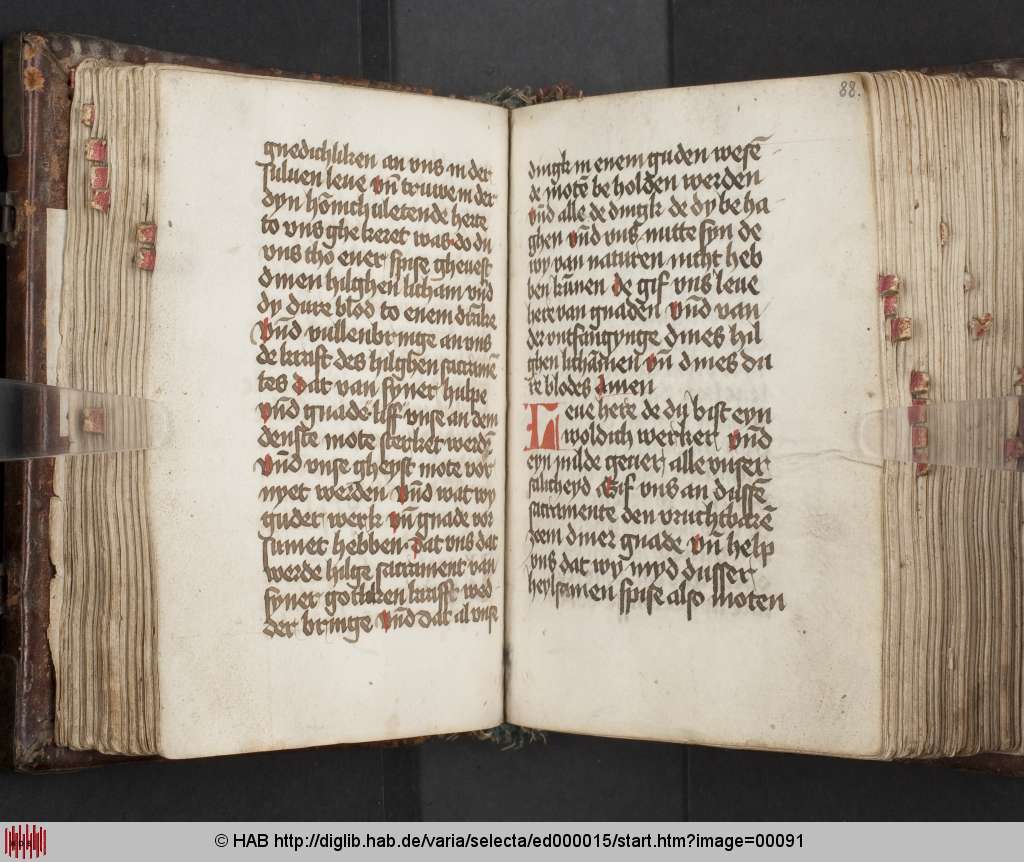 gnedichliken an vns in der
suluen leue vn̄ truwe in der
dyn hōnich uletende herte
to vns ghe keret was do du
vns tho ener spise gheuest
dinen hilghen licham vnd
dy dure blod to enem drāke
Vn̄d vullenbringe an vns
de kraft des hilghen sacramē
tes dat van syner hulpe
vn̄d gnade liff vnse an dem
denste mote sterket werdē
vn̄d vnse gheyst mote vor
nyet werden Vn̄d wat wy
guder werk vn̄ gnade vor
sumet hebben dat vns dat
werde hilge sacrament van
syner gotliken krafft wed
der bringe Vn̄d dat al vnse
88.
dingk in enem guden wesē
de motē be holden werden
vn̄d alle de dingk de dy be ha
ghen vn̄d vns nutte syn de
wy van naturen nicht heb
ben kūnen de gif vns leue
here van gnaden vn̄d van
der vntfangynge dines hil
ghen lichāmen vn̄ dines du
re blodes amen
Leue here de du bist eyn
woldich werker vn̄d
eyn milde geuer alle vnser
salicheyd Gif vns an dussē
sacramente den vruchtbarē
reem diner gnade vn̄ help
vns dat wy myd dusser
heylsamen spise also moten
© HAB http://diglib.hab.de/varia/selecta/ed000015/start.htm?image=00091